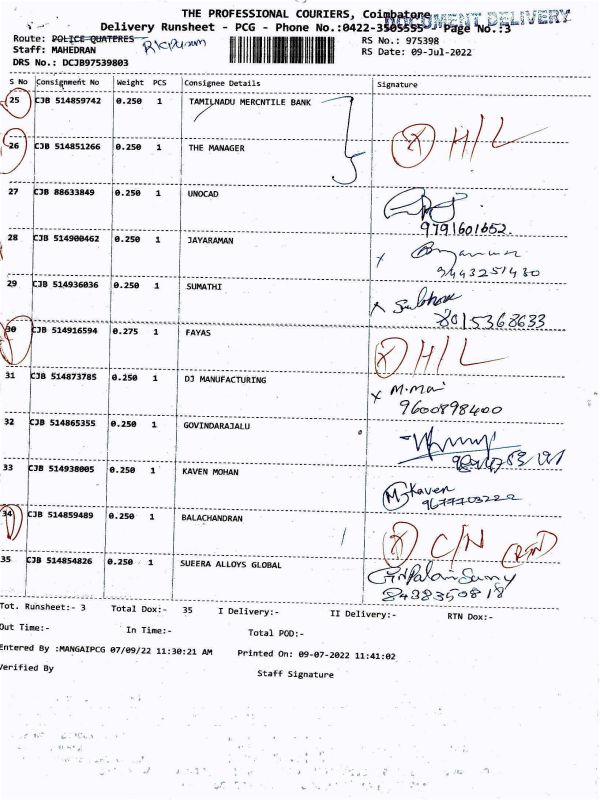 THE PROFESSIONAL COURIERS, Coimbatore
DOCUMENT DELIVERY
Delivery Runsheet - PCG - Phone No.:0422-3505555 Page No.:3
Route: POLICE QUATERES
RS No.: 975398
Staff: MAHEDRAN
RS Date: 09-Jul-2022
DRS No.: DCJB97539803
S No Consignment No Weight PCS Consignee Details Signature
25 CJB 514859742 0.250 1 TAMILNADU MERCNTILE BANK
26 CJB 514851266 0.250 1 THE MANAGER
X H/L
27 CJB 88633849 0.250 1 UNOCAD
9791601652
28 CJB 514900462 0.250 1 JAYARAMAN
x
9443251430
29 CJB 514936036 0.250 1 SUMATHI
x
8015368633
30 CJB 514916594 0.275 1 FAYAS
X H/L
31 CJB 514873785 0.250 1 DJ MANUFACTURING
x M.Mani
9600898400
32 CJB 514865355 0.250 1 GOVINDARAJALU
33 CJB 514938005 0.250 1 KAVEN MOHAN
M Kaven
9677703222
34 CJB 514859489 0.250 1 BALACHANDRAN
X C/N RTN
35 CJB 514854826 0.250 1 SUEERA ALLOYS GLOBAL
8438350818
Tot. Runsheet:- 3 Total Dox:- 35 I Delivery:- II Delivery:- RTN Dox:-
Out Time:- In Time:- Total POD:-
Entered By :MANGAIPCG 07/09/22 11:30:21 AM Printed On: 09-07-2022 11:41:02
Verified By
Staff Signature